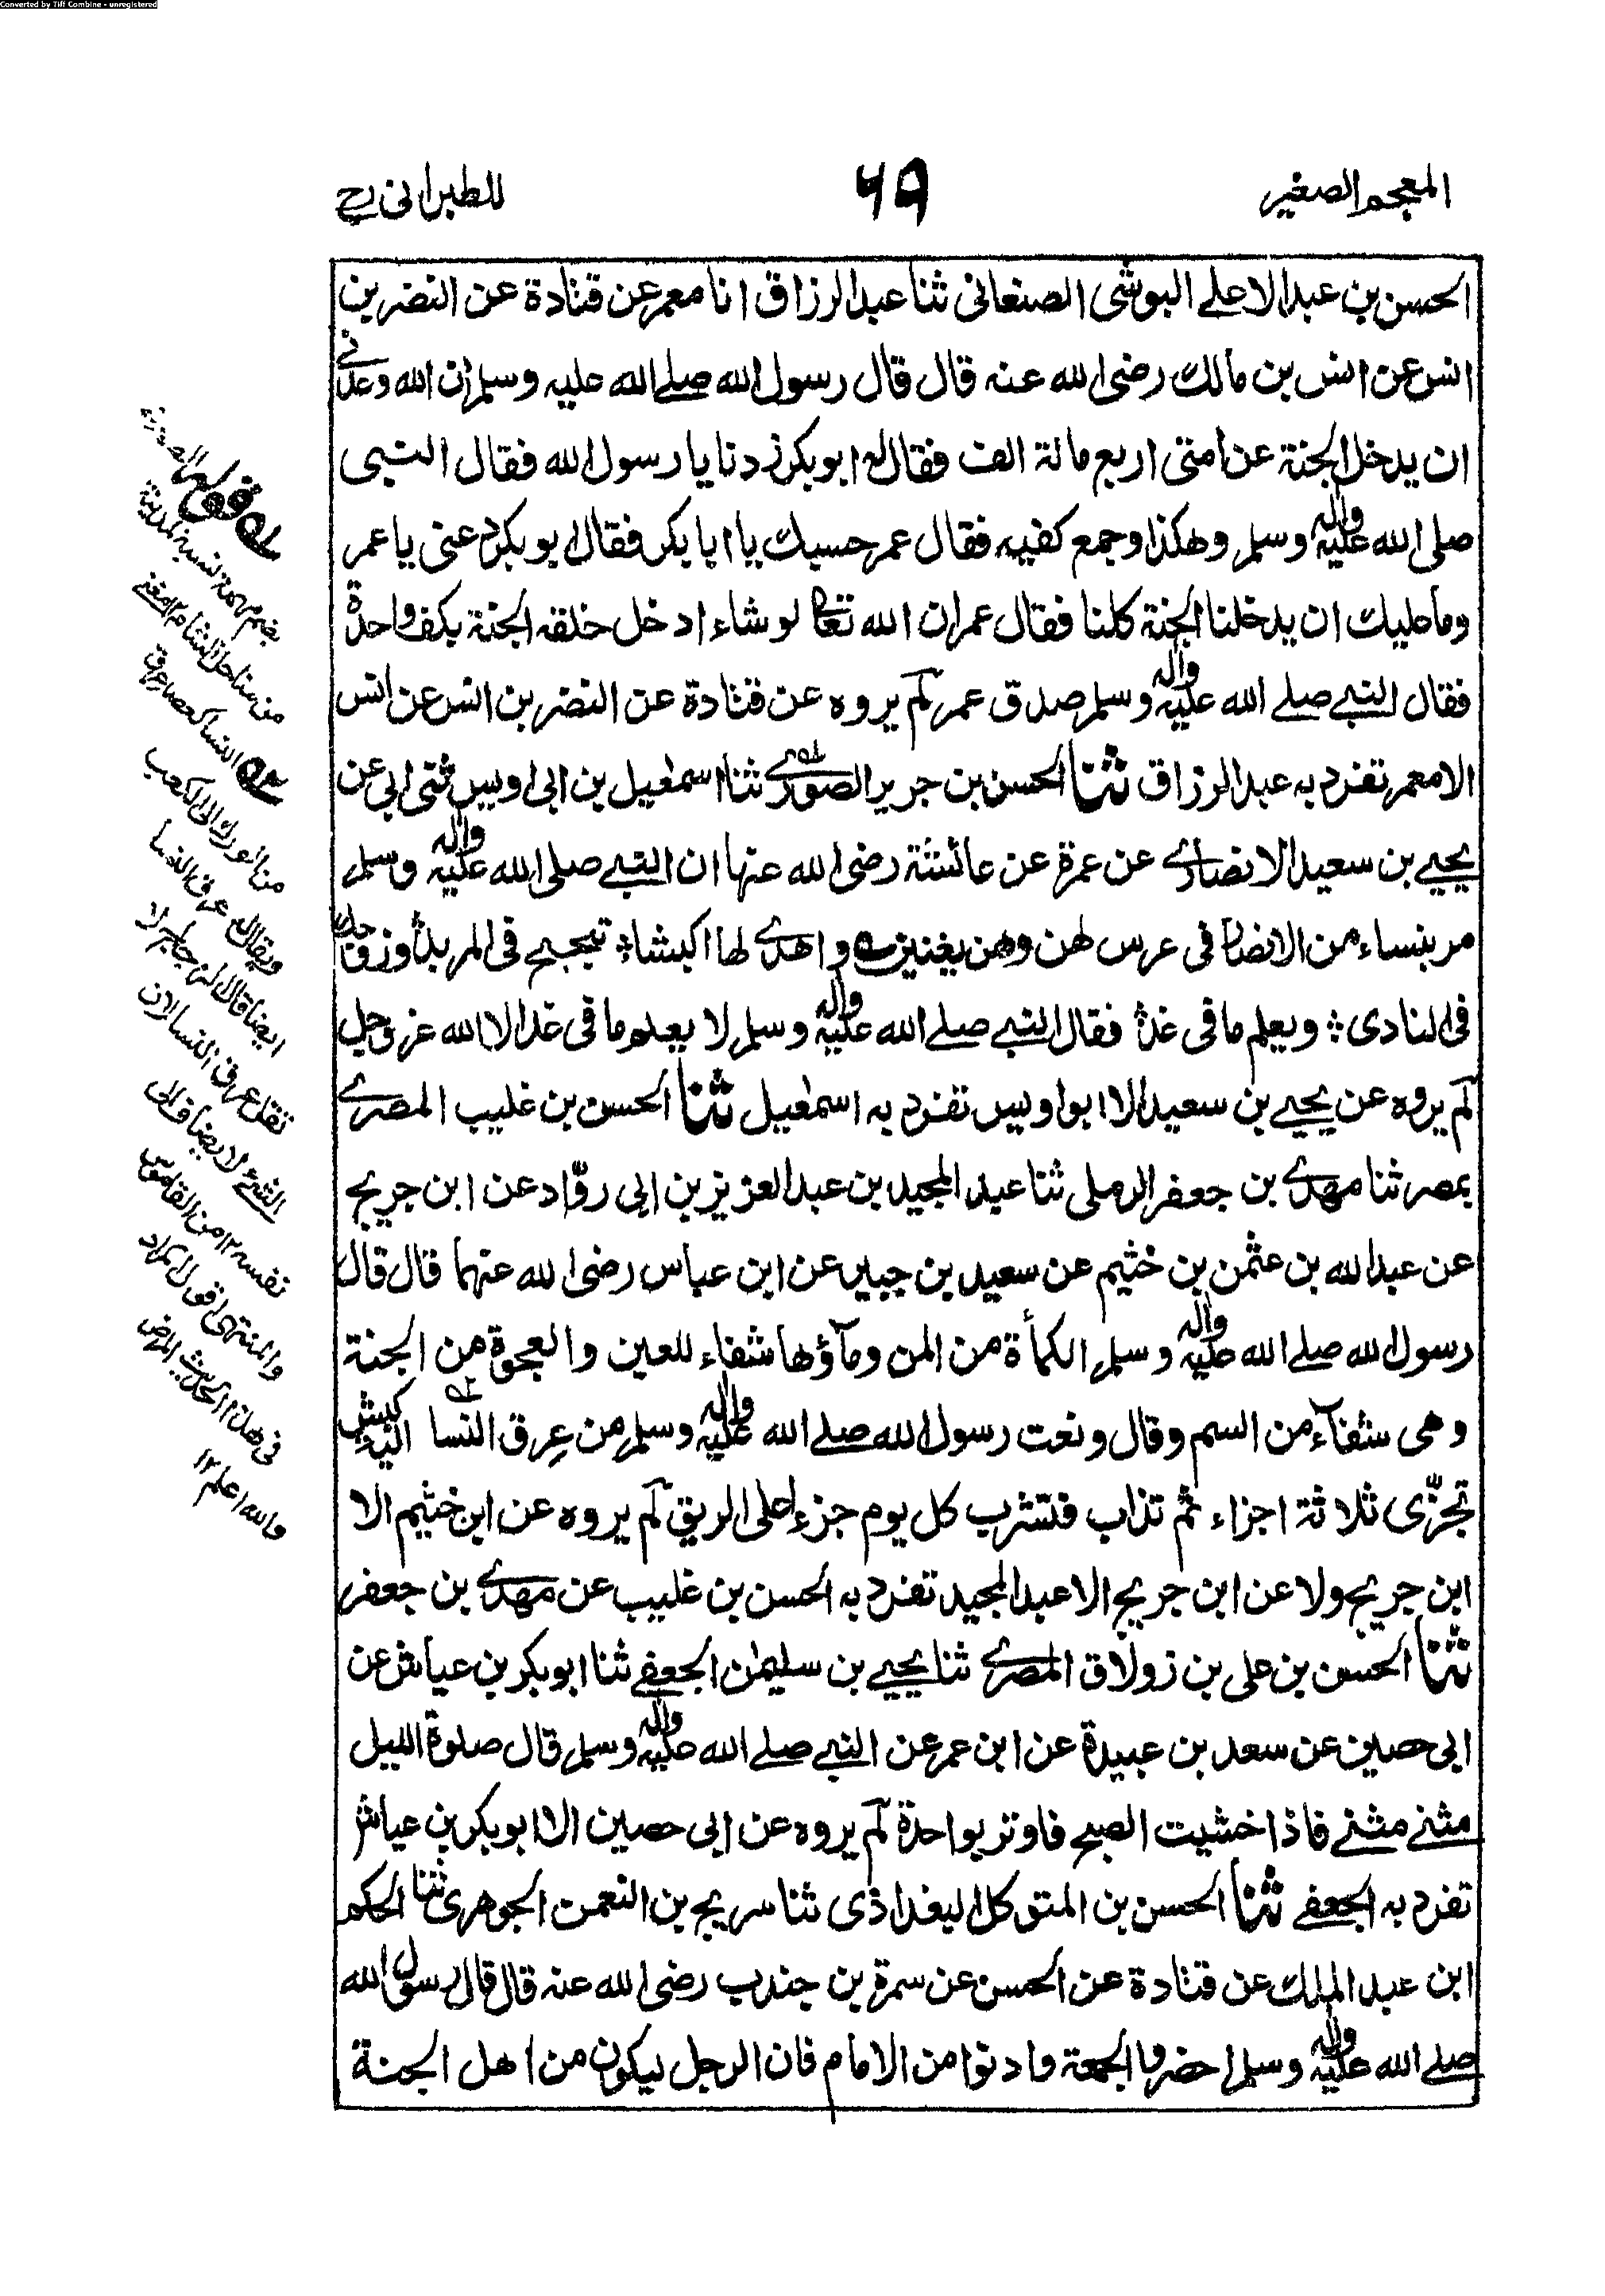 Converted by Tiff Combine - unregistered
المعجم الصغير
٦٩
للطبرانى رح
الحسن بن عبد الاعلے البوشی الصنعانی ثنا عبد الرزاق انا معمر عن قتادة عن النضر بن
انس عن انس بن مالك رضی الله عنه قال قال رسول الله صلے الله علیه وسلم ان الله وعدنے
ان يدخل الجنة عن امتی اربع مائة الف فقال له ابو بكر زدنا يا رسول الله فقال النبی
صلی الله علیه واٰله وسلم وهكذا وجمع كفيه فقال عمر حسبك يا ابا بكر فقال ابو بكر دعنی يا عمر
وما عليك ان يدخلنا الجنة كلنا فقال عمر ان الله تعالٰی لو شاء ادخل خلقه الجنة بكف واحدة
فقال النبے صلے الله علیه واٰله وسلم صدق عمر لم يروه عن قتادة عن النضر بن انس عن انس
الا معمر تفرد به عبد الرزاق ثنا الحسن بن جرير الصورے ثنا اسمٰعيل بن ابی اويس ثنی ابی عن
يحيے بن سعيد الانصارے عن عمرة عن عائشة رضی الله عنها ان النبے صلی الله علیه واٰله وسلم
مر بنساء من الانصار فی عرس لهن وهن يغنين واهدے لها اكبشا تبحبح فی المربد وزوجك
فی النادی ويعلم ما فی غد فقال النبے صلے الله علیه واٰله وسلم لا يعلم ما فی غد الا الله عز وجل
لم يروه عن يحيے بن سعيد الا ابو اويس تفرد به اسمٰعيل ثنا الحسن بن غليب المصرے
بمصر ثنا مهدے بن جعفر الرملی ثنا عبد المجيد بن عبد العزيز بن ابی روّاد عن ابن جريج
عن عبد الله بن عثمٰن بن خثيم عن سعيد بن جبير عن ابن عباس رضی الله عنهما قال قال
رسول الله صلے الله علیه واٰله وسلم الكمأة من المن وماؤها شفاء للعين والعجوة من الجنة
وهی شفآء من السم وقال ونعت رسول الله صلے الله علیه واٰله وسلم من عِرق النسا الية كبش
تجزّی ثلاثة اجزاء ثم تذاب فتشرب كل يوم جزء اعلی الريق لم يروه عن ابن خثيم الا
ابن جريج ولا عن ابن جريج الا عبد المجيد تفرد به الحسن بن غليب عن مهدے بن جعفر
ثنا الحسن بن علی بن زولاق المصرے ثنا يحيے بن سليمٰن الجعفے ثنا ابو بكر بن عياش عن
ابی حصين عن سعد بن عبيدة عن ابن عمر عن النبے صلے الله علیه واٰله وسلم قال صلوة الليل
مثنے مثنے فاذا خشيت الصبح فاوتر بواحدة لم يروه عن ابی حصين الا ابو بكر بن عياش
تفرد به الجعفے ثنا الحسن بن المتوكل البغداذی ثنا سريج بن النعمٰن الجوهری ثنا الحكم
ابن عبد الملك عن قتادة عن الحسن عن سمرة بن جندب رضی الله عنه قال قال رسول الله
صلے الله علیه واٰله وسلم احضروا الجمعة وادنوا من الامام فان الرجل ليكون من اهل الجنة
بضم مهملة نسبة لمدينة
من ساحل الشام ١٢ مغنے
النسا كعصا عرق
من الورك الی الكعب
ويقال عرق النسا
ايضا قال الزجاج لا
تقل عرق النسا لان
الشئ لا يضاف الی
نفسه ١٢ من القاموس
والمنتهی اقول المراد
فی هذا الحديث المرض
والله اعلم ١٢